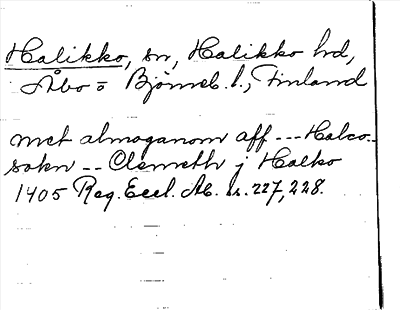 Halikko, sn, Halikko hd,
Åbo o Björneb. l., Finland
met almoganom aff --- Halco-
sokn -- Clemeth j Halko
1405 Reg. Eccl. Ab. s. 227, 228.